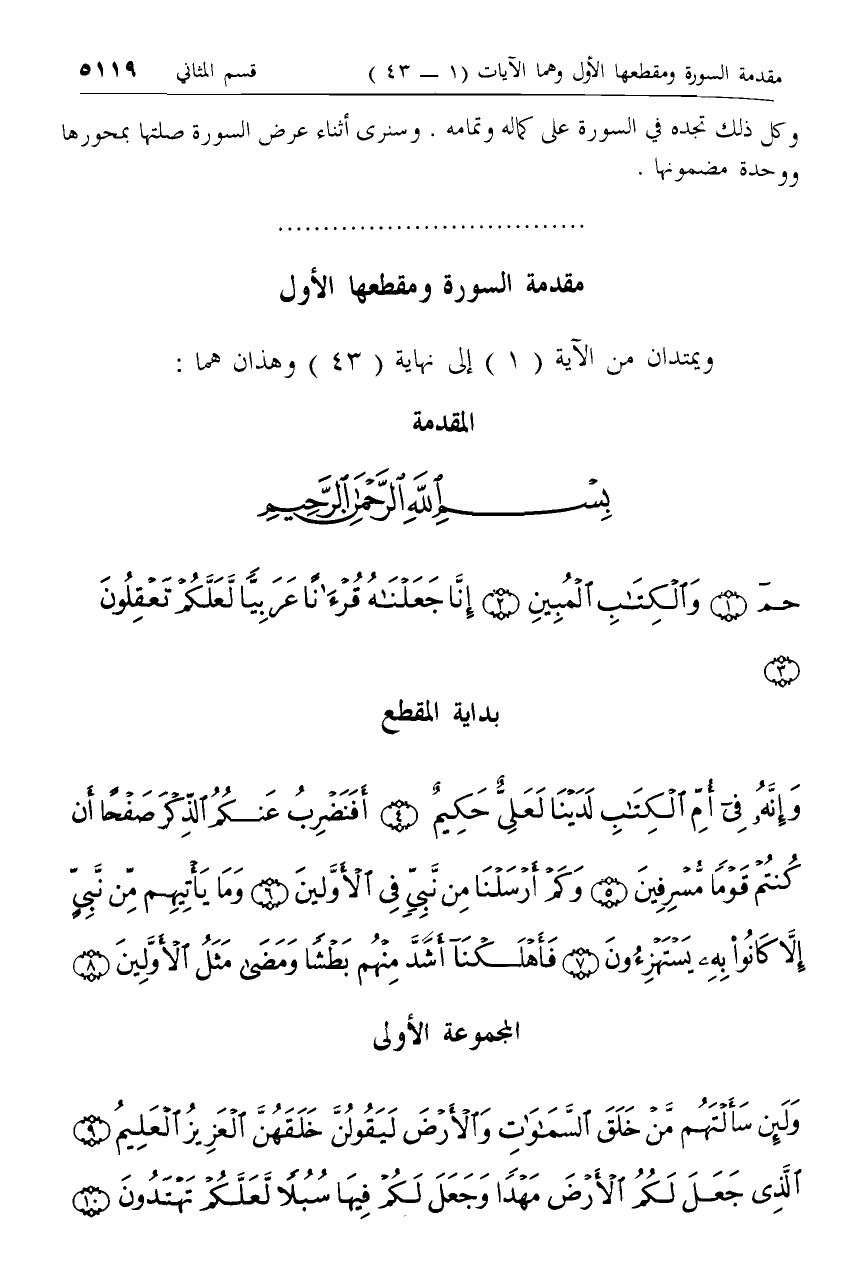 مقدمة السورة ومقطعها الأول وهما الآيات (١ – ٤٣) قسم المثاني ٥١١٩
وكل ذلك تجده في السورة على كماله وتمامه . وسنرى أثناء عرض السورة صلتها بمحورها
ووحدة مضمونها .
مقدمة السورة ومقطعها الأول
ويمتدان من الآية ( ١ ) إلى نهاية ( ٤٣ ) وهذان هما :
المقدمة
بِسْمِ ٱللَّهِ ٱلرَّحْمَٰنِ ٱلرَّحِيمِ
حمٓ ١ وَٱلْكِتَٰبِ ٱلْمُبِينِ ٢ إِنَّا جَعَلْنَٰهُ قُرْءَٰنًا عَرَبِيًّا لَّعَلَّكُمْ تَعْقِلُونَ
٣
بداية المقطع
وَإِنَّهُۥ فِىٓ أُمِّ ٱلْكِتَٰبِ لَدَيْنَا لَعَلِىٌّ حَكِيمٌ ٤ أَفَنَضْرِبُ عَنكُمُ ٱلذِّكْرَ صَفْحًا أَن
كُنتُمْ قَوْمًا مُّسْرِفِينَ ٥ وَكَمْ أَرْسَلْنَا مِن نَّبِىٍّ فِى ٱلْأَوَّلِينَ ٦ وَمَا يَأْتِيهِم مِّن نَّبِىٍّ
إِلَّا كَانُوا۟ بِهِۦ يَسْتَهْزِءُونَ ٧ فَأَهْلَكْنَآ أَشَدَّ مِنْهُم بَطْشًا وَمَضَىٰ مَثَلُ ٱلْأَوَّلِينَ ٨
المجموعة الأولى
وَلَئِن سَأَلْتَهُم مَّنْ خَلَقَ ٱلسَّمَٰوَٰتِ وَٱلْأَرْضَ لَيَقُولُنَّ خَلَقَهُنَّ ٱلْعَزِيزُ ٱلْعَلِيمُ ٩
ٱلَّذِى جَعَلَ لَكُمُ ٱلْأَرْضَ مَهْدًا وَجَعَلَ لَكُمْ فِيهَا سُبُلًا لَّعَلَّكُمْ تَهْتَدُونَ ١٠